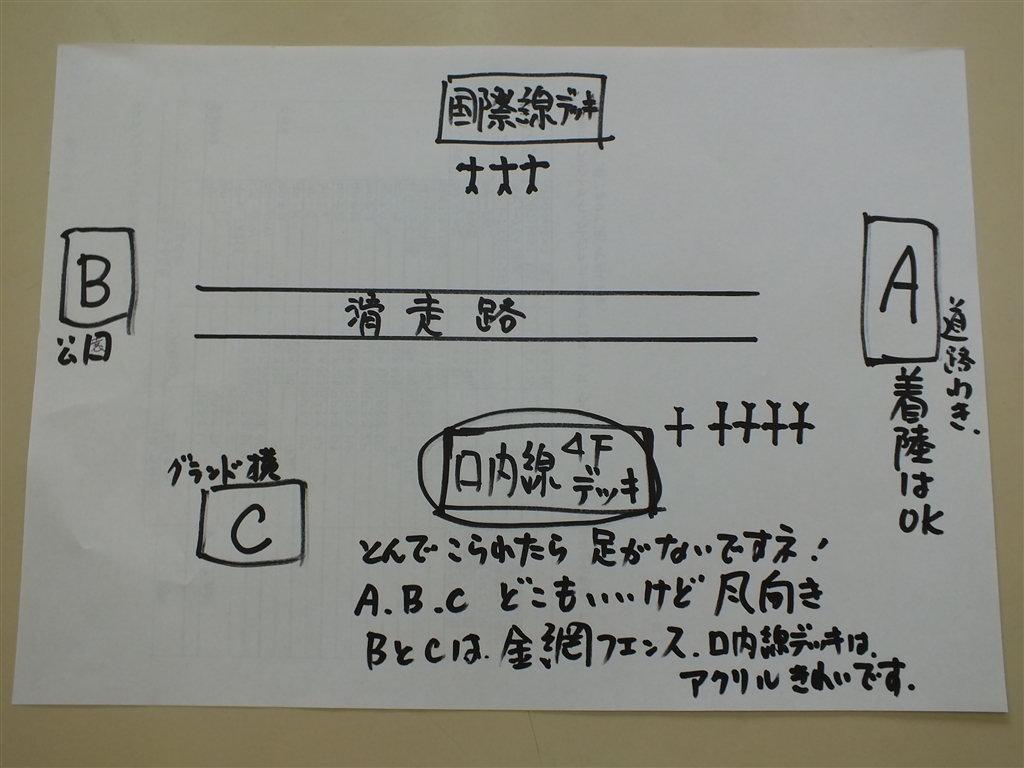 国際線デッキ
B
公園
滑走路
A
道路わき、
着陸はOK
グランド横
C
口内線 4F デッキ
とんでこられたら 足がないですネ!
A.B.C どこもいいけど 風向き
BとCは、金網フェンス、口内線デッキは、
アクリル きれいです.